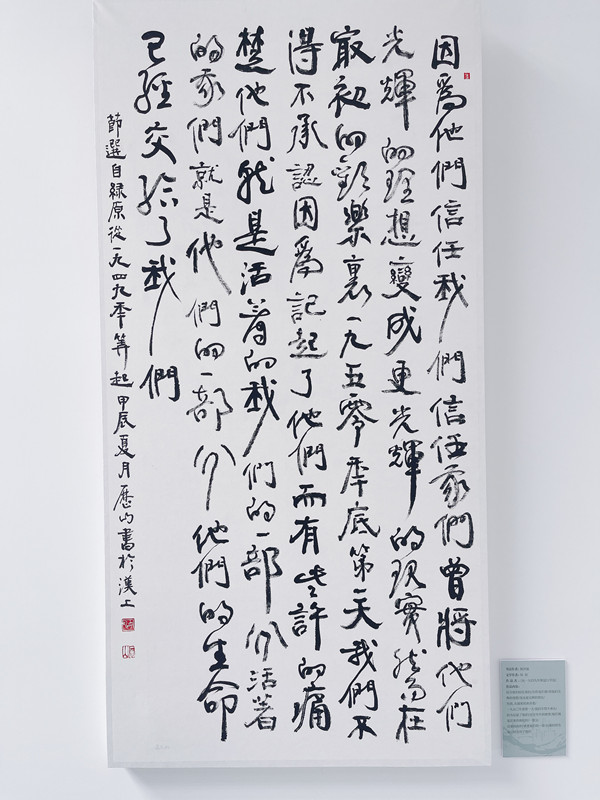 因為他們信任我們信任我們曾將他们
光輝的理想變成更光輝的現實然而在
最初的歡樂裏一九五零年底第一天我們不
得不承認因為記起了他們而有些許的痛
楚他們就是活着的我们的一部分活着
的我們就是他們的一部分他們的生命
已經交給了我們
節選自綠原從一九四九年算起甲辰夏月歷山書於漢上